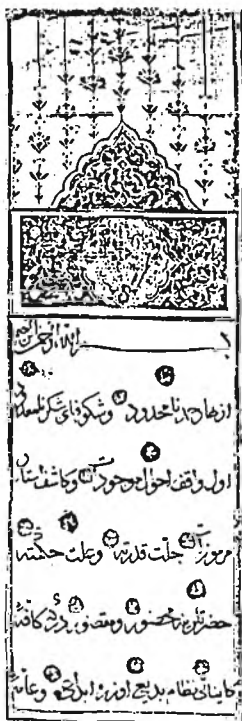 بسم الله الرحمن الرحيم
ازهار حمد نامحدود وشكوفهای شكر نامعدود
اول واقف احوال موجودات وكاشف استار
مرموزات جلت قدرته وعلت حكمته
حضرتلرينه محضور ومقصوردركه كافهٔ
كايناتى نظام بديع اوزره ابداع وعامهٔ